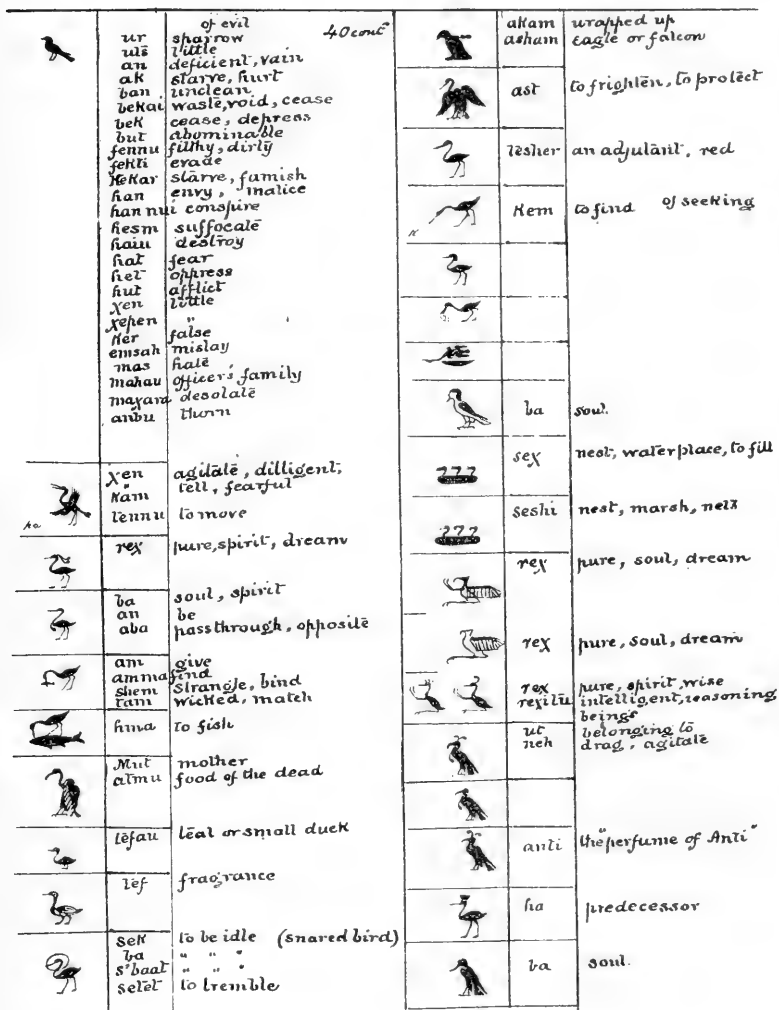 of evil
ur sparrow 40 cont
uls little
an deficient, vain
ak starve, hurt
ban unclean
bekai waste, void, cease
bek cease, depress
but abominable
fennu filthy, dirty
fekti evade
Kekar starve, famish
han envy, malice
han nui conspire
hesm suffocate
haiu destroy
hat fear
het oppress
hut afflict
χen little
χepen "
Ker false
emsah mislay
mas hate
mahau officer's family
maχara desolate
anbu thorn
χen agitate, dilligent,
Kam tell, fearful
tennu to move
reχ pure, spirit, dream
ba soul, spirit
an be
aba pass through, opposite
am give
amma find
shem strangle, bind
tam wicked, match
hma to fish
Mut mother
atmu food of the dead
tefau teal or small duck
tef fragrance
sek to be idle (snared bird)
ba " " "
s'baat " " "
setet to tremble
akam wrapped up
asham eagle or falcon
ast to frighten, to protect
tesher an adjutant, red
Kem to find of seeking
ba soul.
seχ nest, water place, to fill
seshi nest, marsh, nets
reχ pure, soul, dream
reχ pure, soul, dream
reχ pure, spirit, wise
reχitu intelligent, reasoning
beings
ut belonging to
neh drag, agitate
anti the "perfume of Anti"
ha predecessor
ba soul.